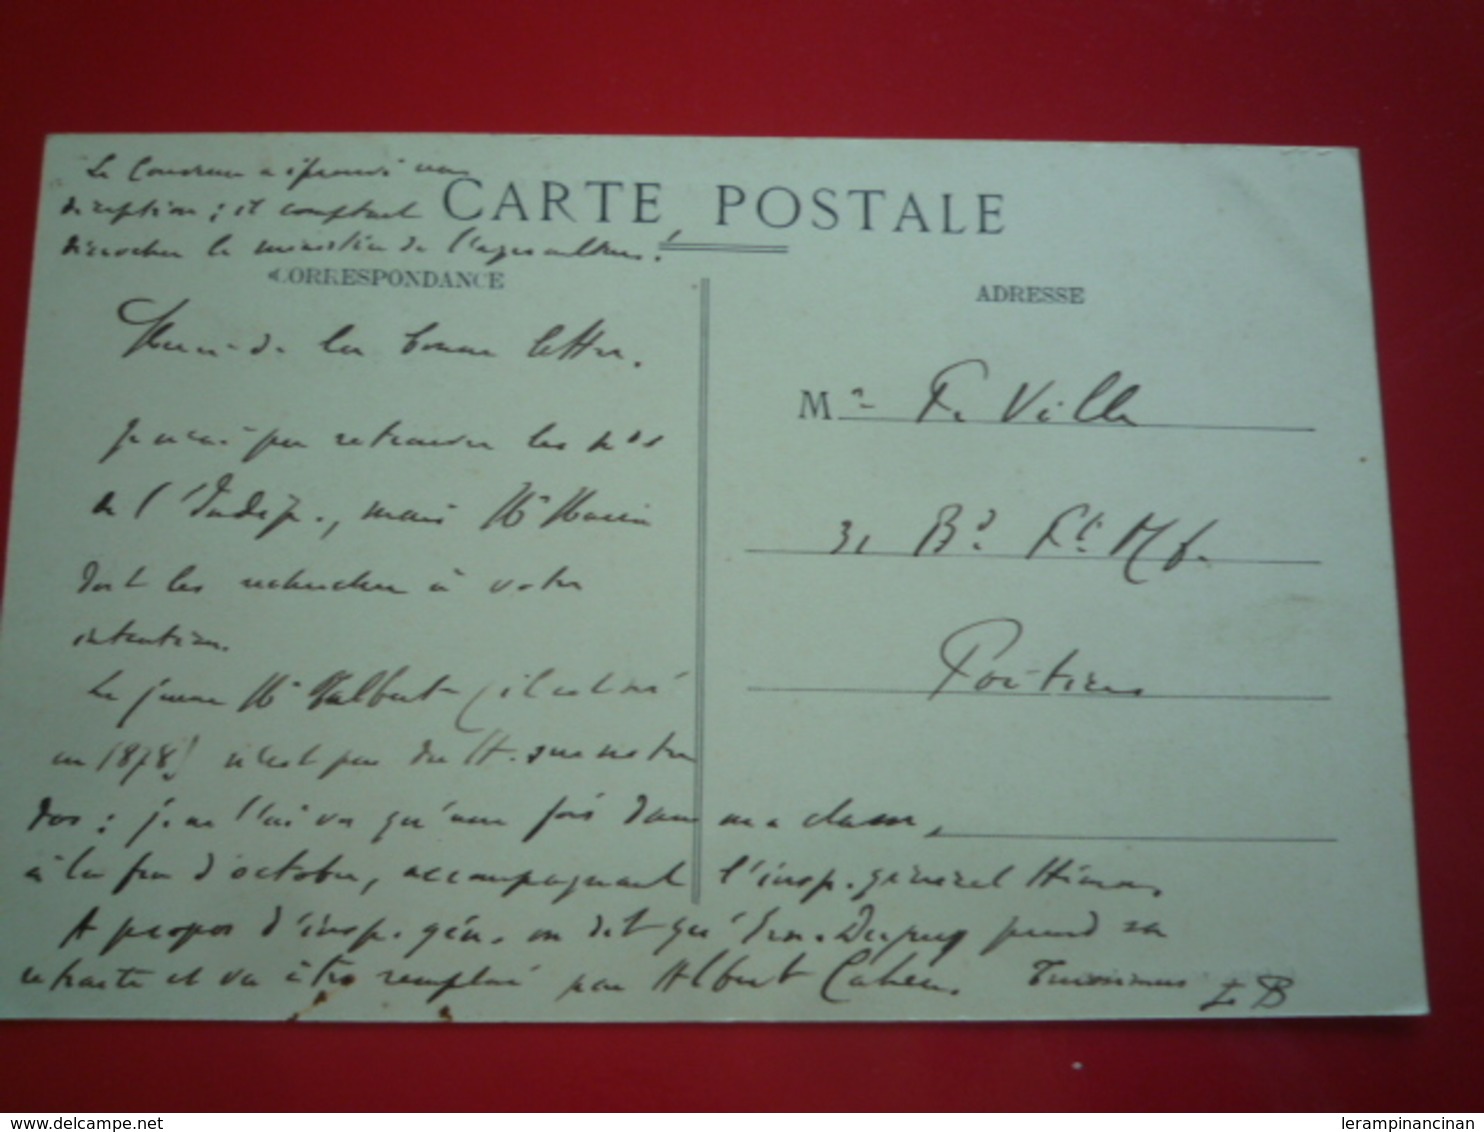 Le a éprouvé une
déception ; il comptait
décrocher le ministère de l'agriculture !
CARTE POSTALE
CORRESPONDANCE
ADRESSE
Merci de la bonne lettre.
Je n'ai pu retrouver les nos
de l'Indép., mais Mr
doit les rechercher à votre
intention.
Le jeune Mr Halbert (il est né
en 1878) n'est pas du tt. sur notre
dos : je ne l'ai vu qu'une fois dans ma classe,
à la fin d'octobre, accompagnant l'insp. général
A propos d'insp. gén. on dit qu' Dupuy prend sa
retraite et va être remplacé par Albert Cahen.
LB
Mr F. Ville
31 Bd
Poitiers
delcampe.net
lerampinancinan